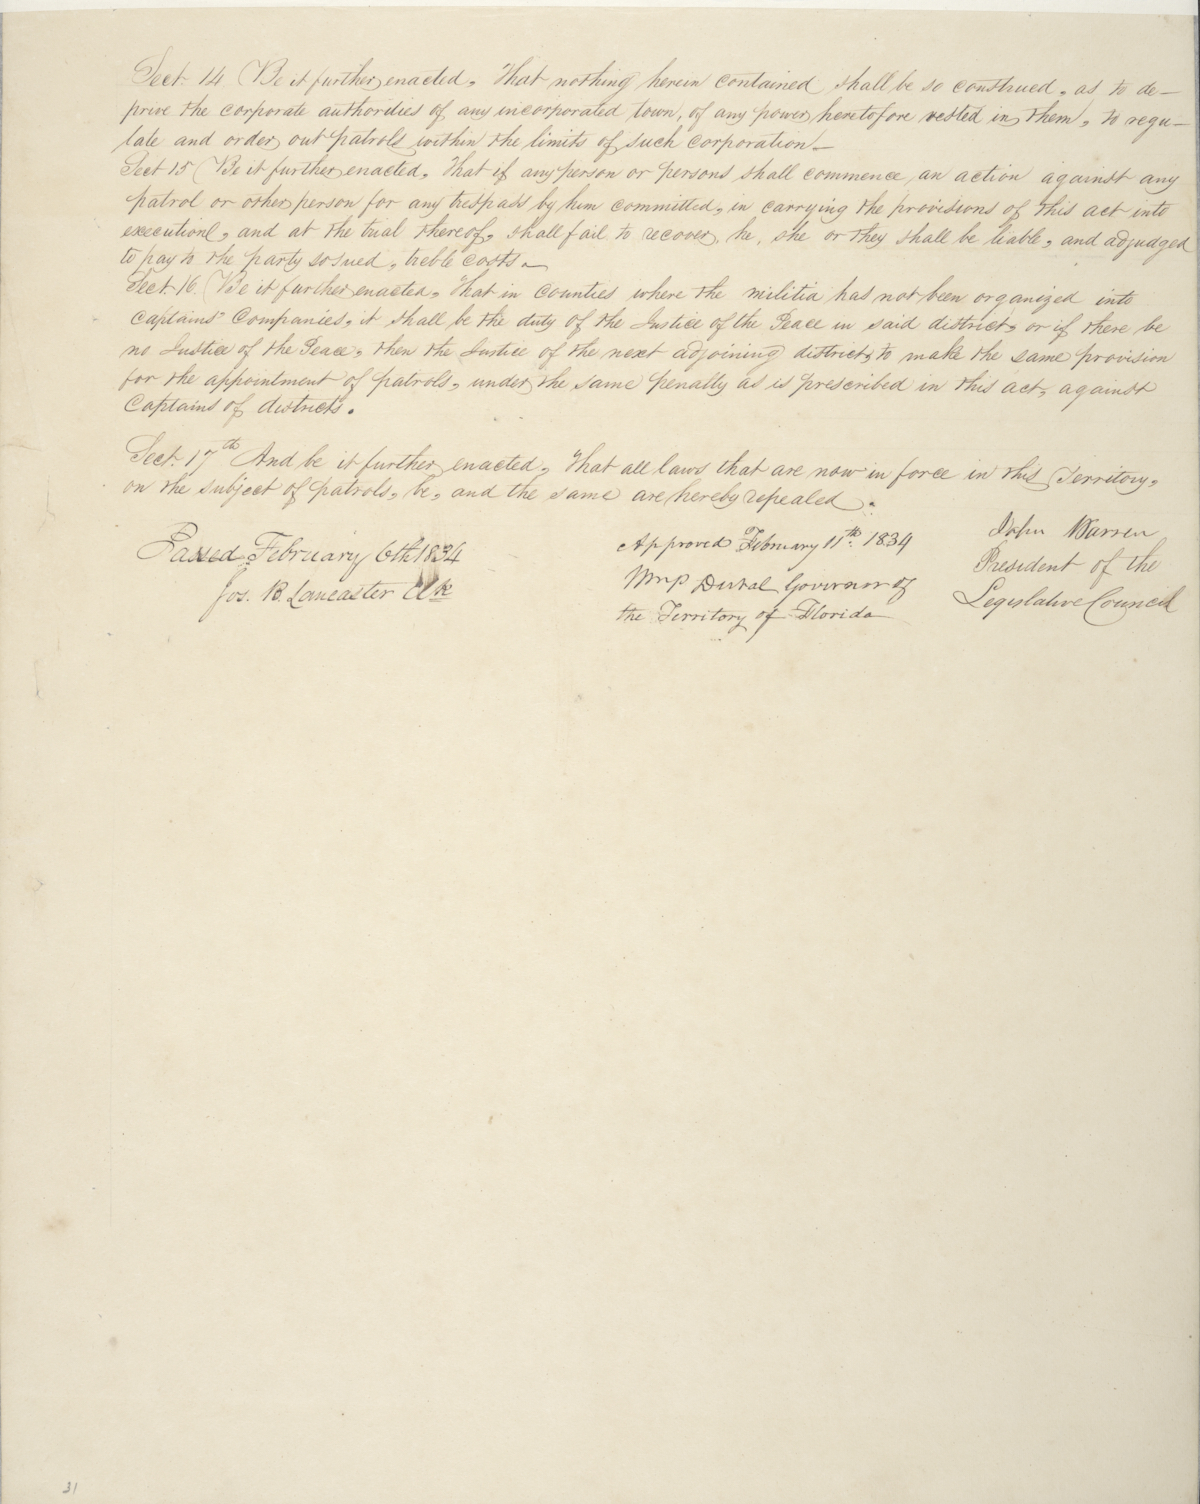 Sect. 14 Be it further enacted, That nothing herein contained shall be so construed, as to de-
prive the corporate authorities of any incorporated town, of any power heretofore vested in them, to regu-
late and order out patrols within the limits of such corporation.
Sect 15 Be it further enacted, That if any person or persons shall commence an action against any
patrol or other person for any trespass by him committed, in carrying the provisions of this act into
execution, and at the trial thereof, shall fail to recover, he, she or they shall be liable, and adjudged
to pay to the party so sued, treble costs.
Sect. 16 Be it further enacted, That in counties where the militia has not been organized into
Captains' Companies, it shall be the duty of the Justice of the Peace in said district, or if there be
no Justice of the Peace, then the Justice of the next adjoining district, to make the same provision
for the appointment of patrols, under the same penalty as is prescribed in this act, against
Captains of districts.
Sect. 17th And be it further enacted, That all laws that are now in force in this Territory,
on the subject of patrols, be, and the same are hereby repealed.
Passed February 6th 1834
Jos. B Lancaster Clk
Approved February 11th. 1834
Wm P Duval Governor of
the Territory of Florida
John Warren
President of the
Legislative Council
31